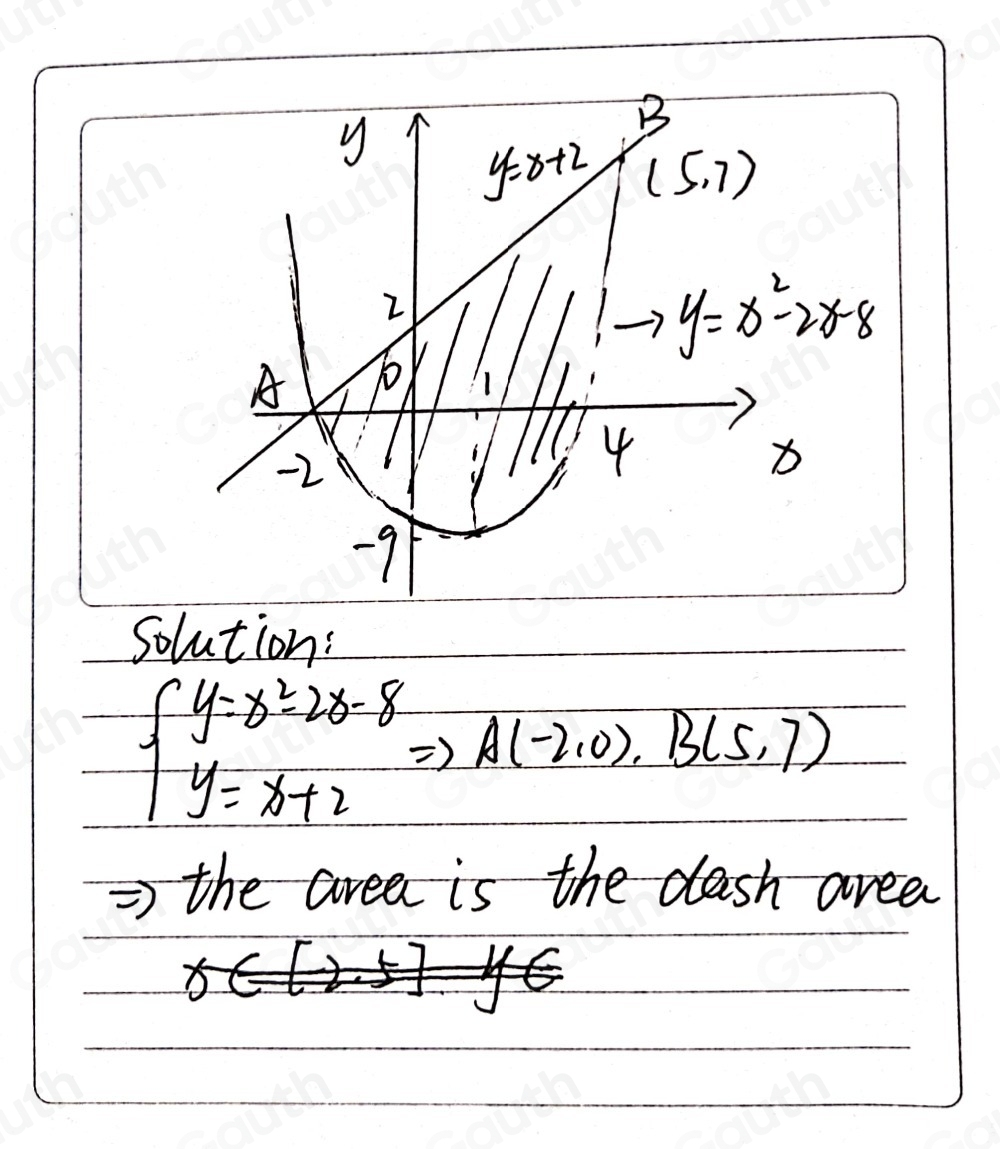 y
B
y=x+2
(5,7)
2
→ y=x²-2x-8
A
0
1
-2
4
x
-9
Solution:
{ y=x²-2x-8
y=x+2
⇒ A(-2,0). B(5,7)
⇒ the area is the dash area
x∈[-2.5]. y∈
Gauth